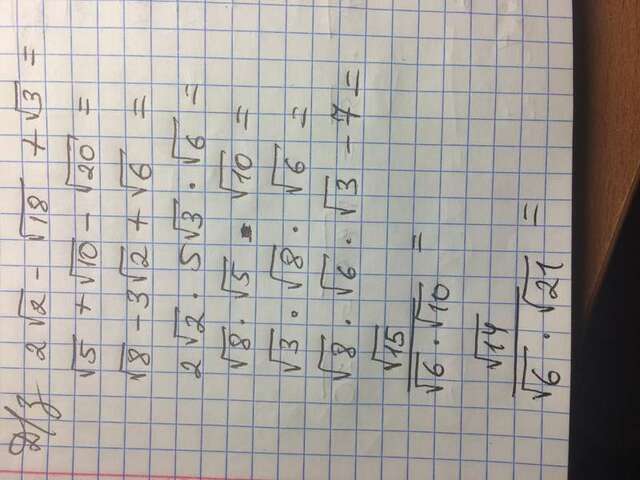 Д/з 2√2 - √18 + √3 =
√5 + √10 - √20 =
√8 - 3√2 + √6 =
2√2 · 5√3 · √6 =
√8 · √5 · √10 =
√3 · √8 · √6 =
√8 · √6 · √3 - 7 =
√15 / √6 · √10 =
√14 / √6 · √21 =